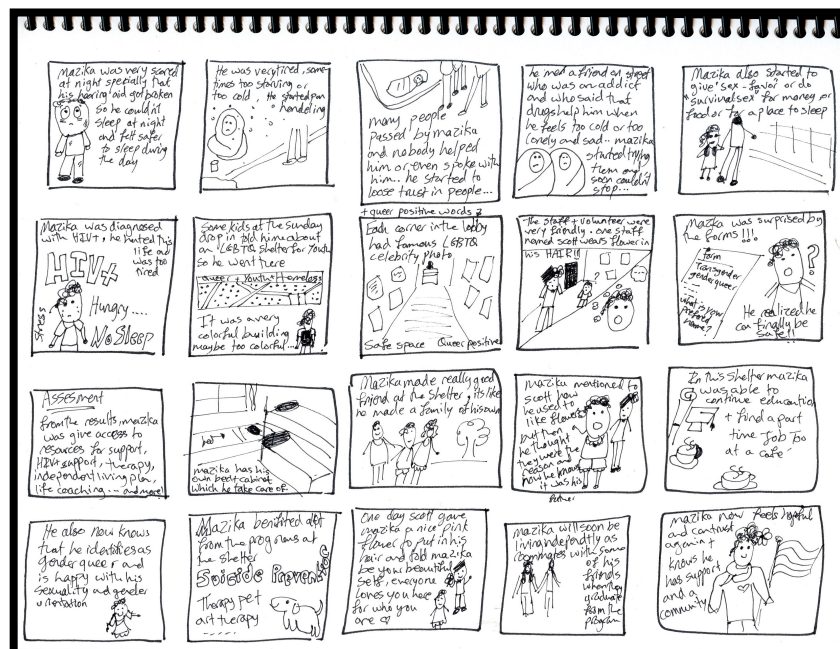 Mazika was very scared
at night specially that
his hearing aid got broken
so he couldn't
sleep at night
and felt safer
to sleep during
the day
He was very tired, some-
times too starving or
too cold, He started pan
handeling
many people
passed by mazika
and nobody helped
him or even spoke with
him.. he started to
loose trust in people...
he med a friend on street
who was an addict
and who said that
drugs help him when
he feels too cold or too
lonely and sad.. mazika
started trying
them and
soon couldn't
stop...
Mazika also started to
give "sex-favor" or do
"survival sex" for money or
food or for a place to sleep
Mazika was diagnosed
with HIV+, he hated this
life and
was too
tired
HIV+
Stress
Hungry....
No Sleep
Some kids at the Sunday
drop in told him about
an LGBTQ shelter for Youth
so he went there
queer + Youth + Homeless
It was a very
colorful building
maybe too colorful...
+ queer positive words
Each corner in the lobby
had famous LGBTQ
celebrity photo
Safe space Queer positive
the staff + volunteer were
very friendly. one staff
named scott wears flower in
his HAIR!!!
Mazika was surprised by
the forms !!!
form
Transgender
genderqueer
...
what is your
prefered
name?
?
He realized he
can finally be
safe!!
Assesment
from the results, mazika
was give access to
resources for support,
HIV+ support, therapy,
independent living plan,
life coaching... and more!
bed
mazika has his
own bed + cabinet
which he take care of
Mazika made really good
friend at the shelter, its like
he made a family of his own
mazika mentioned to
scott how
he used to
like flowers
but then
he thought
they were the
reason and
now he knows
it was his
father
In this shelter mazika
was able to
continue education
+ find a part
time Job too
at a cafe
He also now knows
that he identifies as
gender queer and
is happy with his
sexuality and gender
orientation
Mazika benifited alot
from the programs at
the shelter
Suiside Prevention
Therapy pet
art therapy
.....
One day scott gave
mazika a nice pink
flower to put in his
hair and told mazika
be your beautiful
self, everyone
loves you here
for who you
are
mazika will soon be
living independtly as
roommates with some
of his
friends
when they
graduate
from the
program
mazika now feels hopeful
and
again +
knows he
has support
and a
community